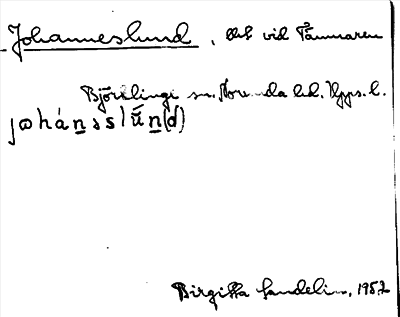 Johanneslund, bst vid Tämnaren
Björklinge sn. Norunda hd. Upps. l.
jɷhánəslǘn(d)
Birgitta Sandelin, 1957